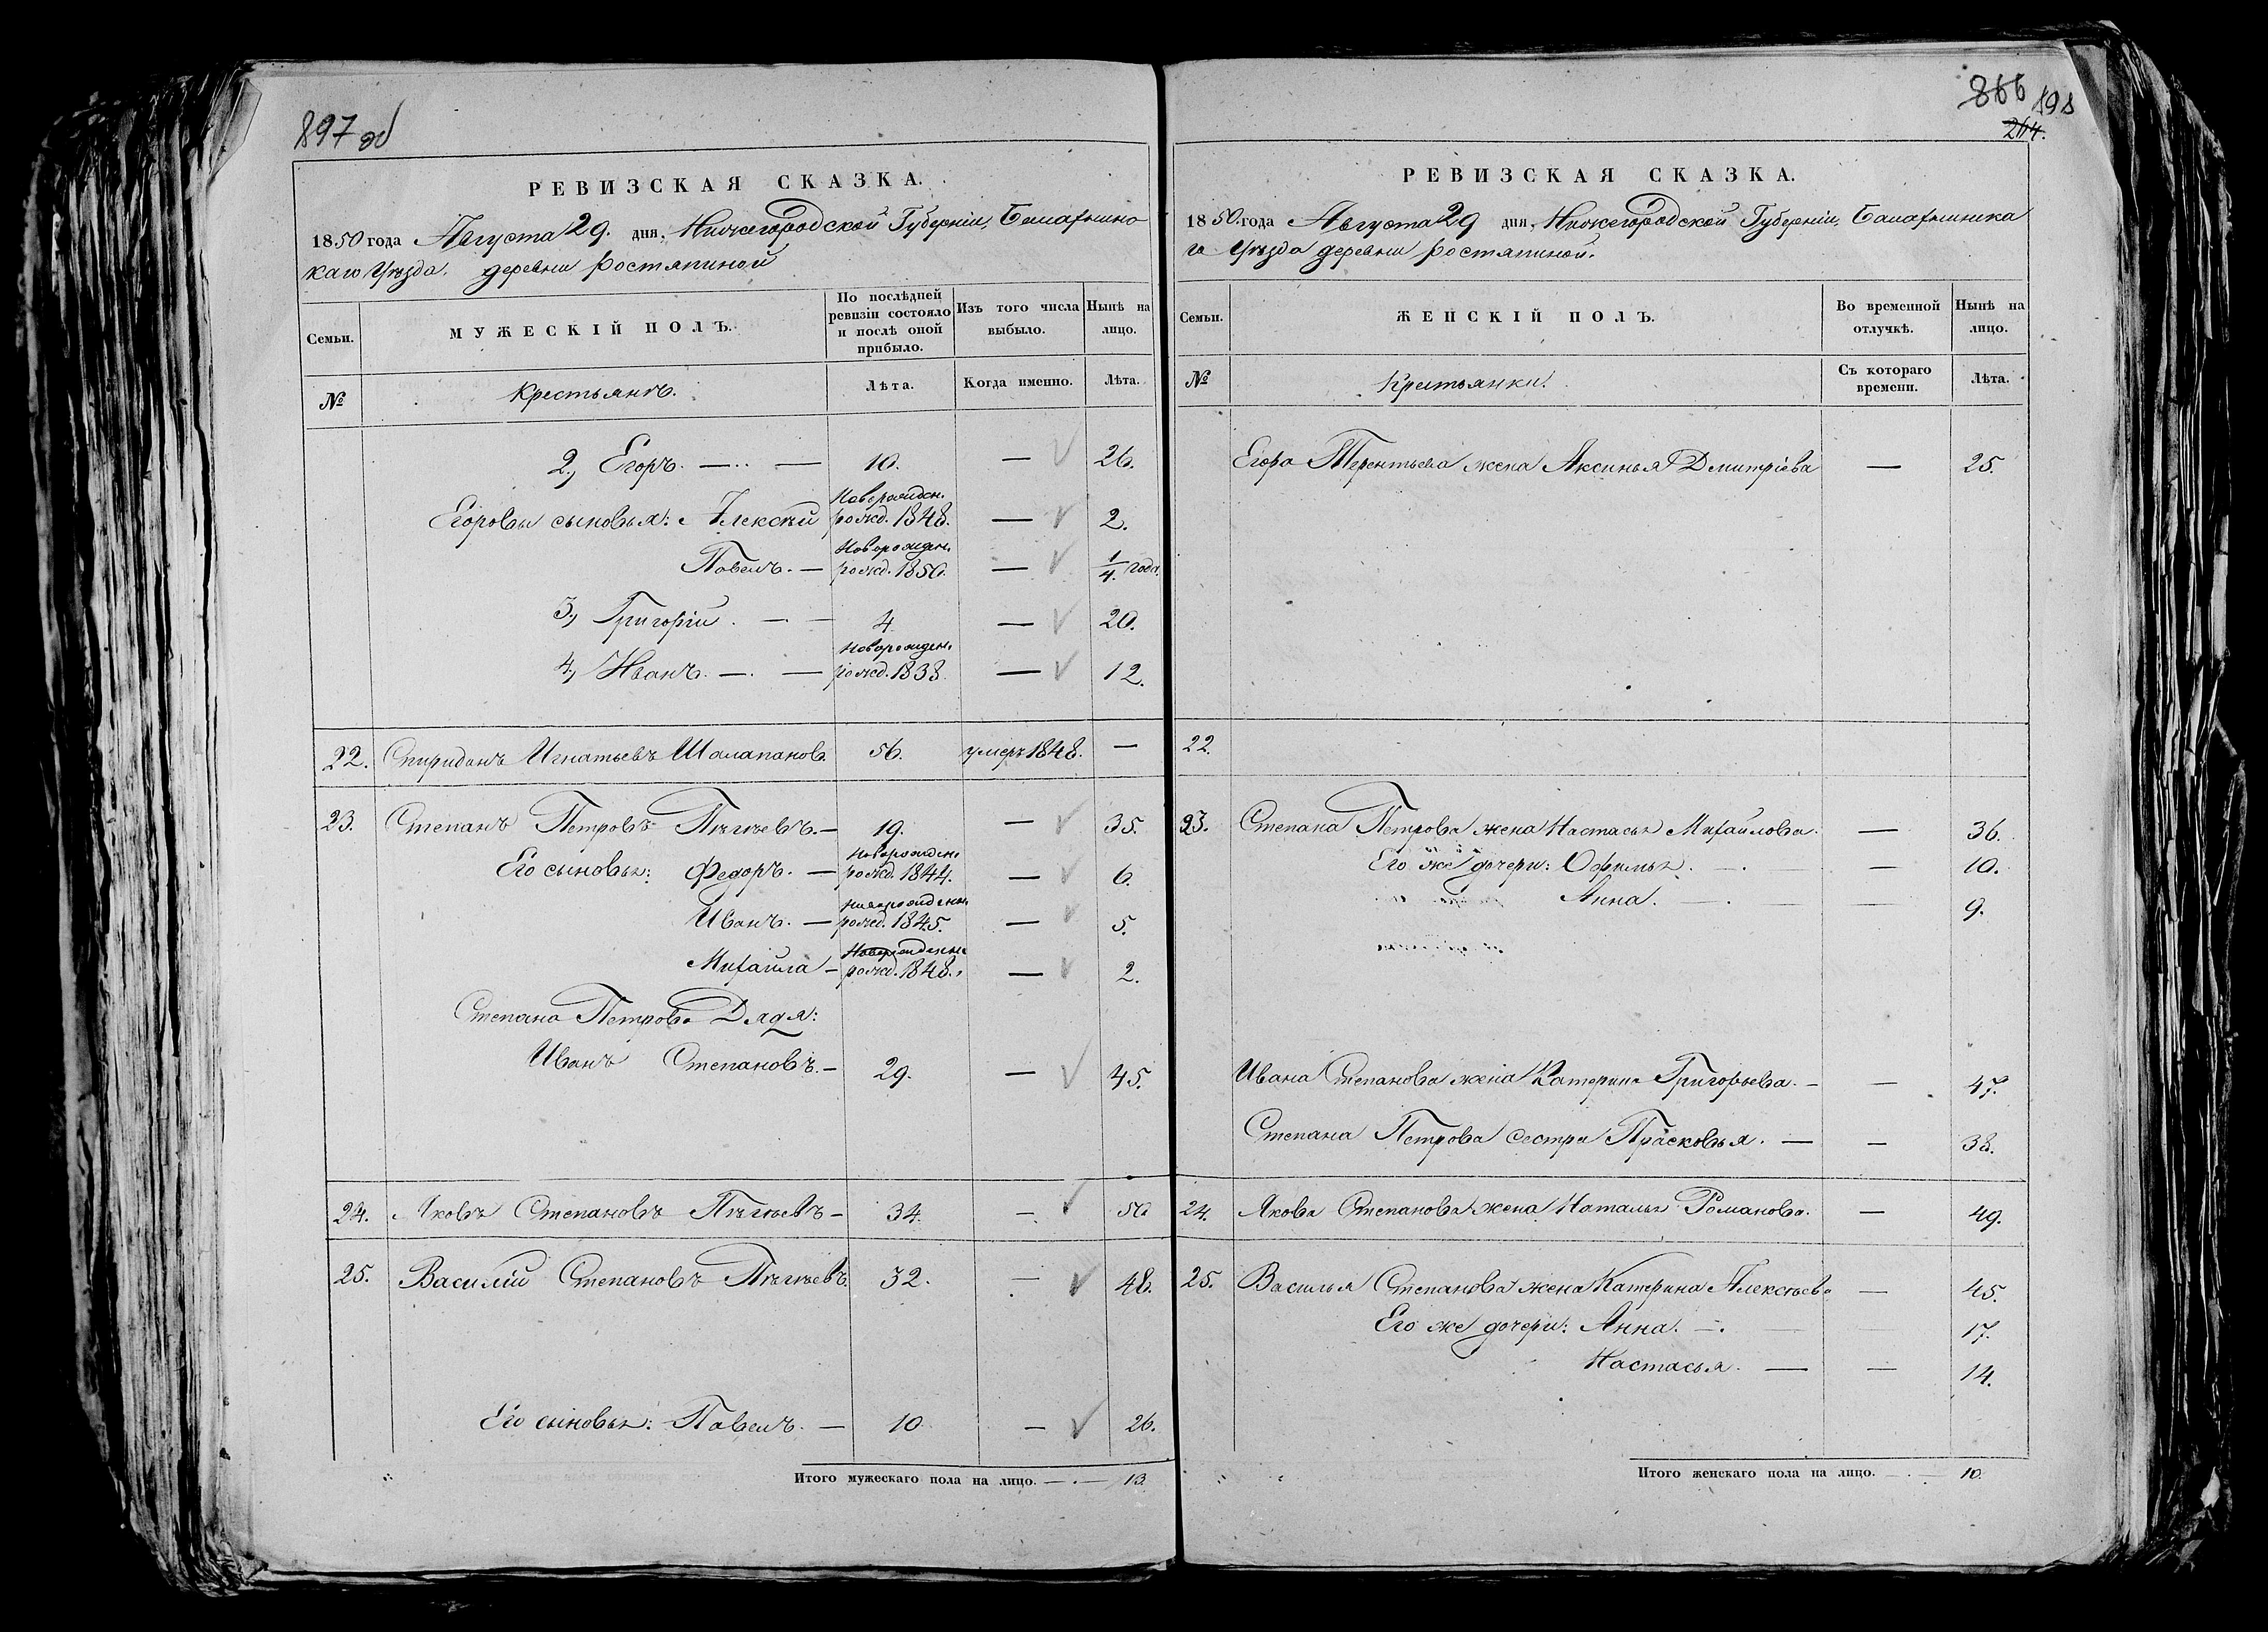 897 об
РЕВИЗСКАЯ СКАЗКА.
1850 года Августа 29. дня, Нижегородской Губерніи, Балахнинс
каго Уѣзда, деревни Ростяпиной
Семьи.
МУЖЕСКІЙ ПОЛЪ.
По послѣдней ревизіи состояло и послѣ оной прибыло.
Изъ того числа выбыло.
Нынѣ на лицо.
№
Крестьянъ.
Лѣта.
Когда именно.
Лѣта.
2, Егоръ. — — 10. — 26.
Новорожден.
Егоровы сыновья: Алексѣй рожд. 1848. — 2.
Новорожден.
Павелъ. — рожд. 1850. — 1/4 года.
3, Григорій. — — 4. — 20.
Новорожден.
4, Иванъ. — — рожд. 1838. — 12.
22. Спиридонъ Игнатьевъ Шалапановъ 56. умеръ 1848. —
23. Степанъ Петровъ Пѣгѣевъ. — 19. — 35.
Новорожден.
Его сыновья: Федоръ. — рожд. 1844. — 6.
Новорожден.
Иванъ. — рожд. 1845. — 5.
Новорожден.
Михайла — рожд. 1848. — 2.
Степана Петрова Дядя:
Иванъ Степановъ. — 29. — 45.
24. Яковъ Степановъ Пѣгѣевъ — 34. — 50
25. Василій Степановъ Пѣгѣевъ. 32. — 48.
Его сыновья: Павелъ. — 10. — 26.
Итого мужескаго пола на лицо. — 13.
866 898
264.
РЕВИЗСКАЯ СКАЗКА.
1850. года Августа 29 дня, Нижегородской Губерніи, Балахнинска
го Уѣзда деревни Ростяпиной.
Семьи.
ЖЕНСКІЙ ПОЛЪ.
Во временной отлучкѣ.
Нынѣ на лицо.
№
Крестьянки.
Съ котораго времени.
Лѣта.
Егора Терентьева жена Аксинья Дмитріева — 25.
22.
23. Степана Петрова жена Настасья Михайлова. — 36.
Его же дочери: Офимья. — — 10.
Анна. — — 9.
Ивана Степанова жена Катерина Григорьева. — — 47.
Степана Петрова сестра Прасковья. — — 38.
24. Якова Степанова жена Наталья Романова. — 49.
25. Василья Степанова жена Катерина Алексѣева — 45.
Его же дочери: Анна. — — 17.
Настасья. — — 14.
Итого женскаго пола на лицо. — 10.